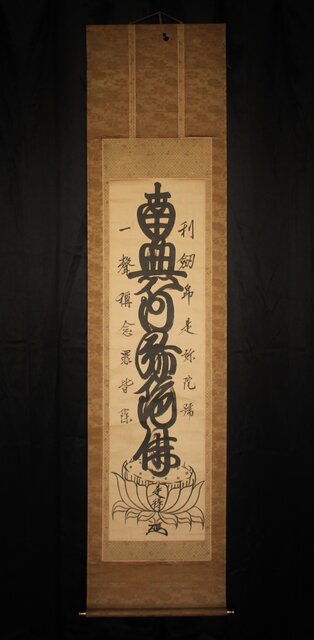 利劔即是弥陀號
南無阿弥陀佛
一聲稱念罪皆除